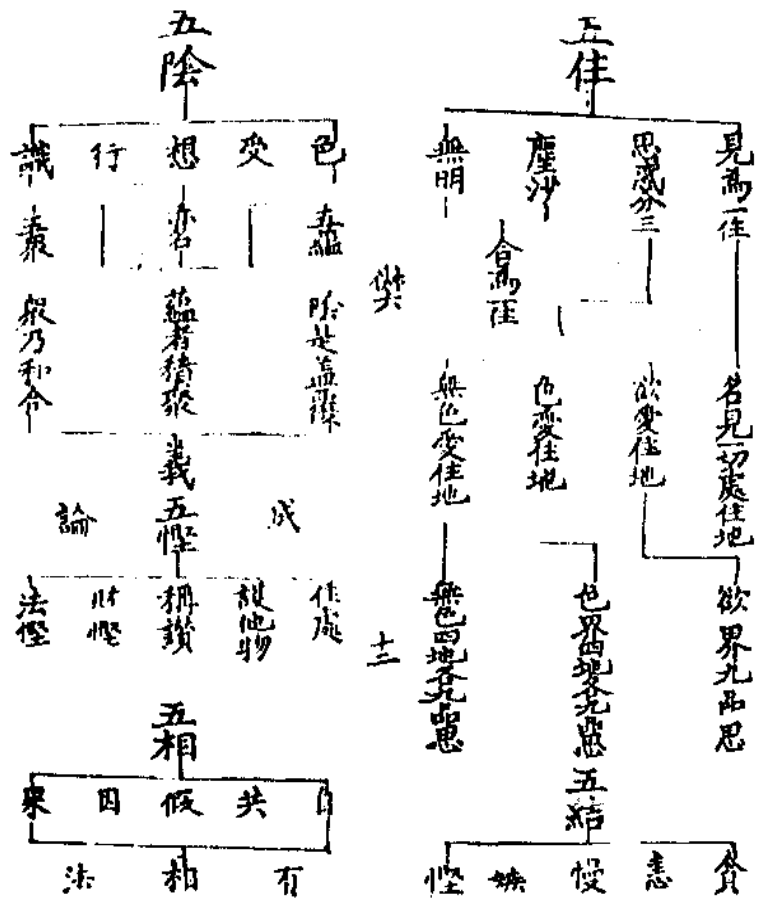 五住
見為一住
思惑分三
塵沙
無明
合為一住
名見一切處住地
欲愛住地
色愛住地
無色愛住地
欲界九品思
色界四地各九品思
無色四地各九品思
五結
貪
恚
慢
嫉
慳
十三
五陰
色
受
想
行
識
五蘊
亦名
五眾
陰是蓋覆
蘊者積聚
眾乃和合
義
五慳
成
論
住處
說他物
稱讚
財慳
法慳
五相
自
共
假
因
果
有
相
法